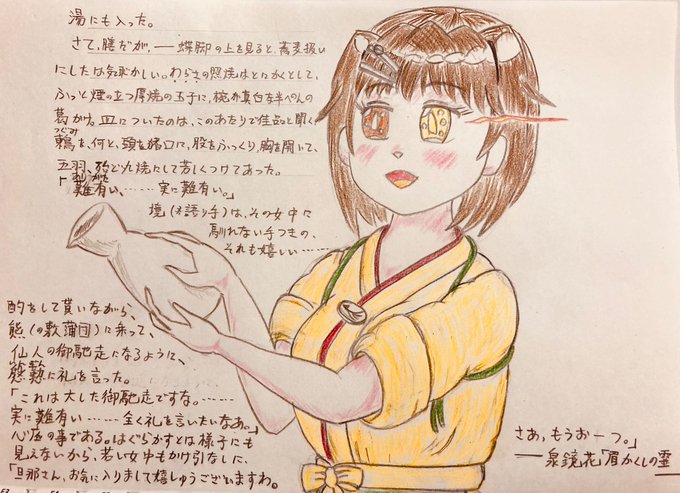 湯にも入った。
さて、膳だが、―蝶脚の上を見ると、蕎麦扱い
にしたは気恥かしい。わらさの照焼はとにかくとして、
ふっと煙の立つ厚焼の玉子に、椀が真白な半ぺんの
葛かけ。皿についたのは、このあたりで佳品と聞く
つぐみ
鶫を、何と、頭を猪口に、股をふっくり、胸を開いて、
五羽、殆ど丸焼にして芳しくつけてあった。
ありがた
「難有い、……実に難有い。」
境(※語り手)は、その女中に
馴れない手つきの、
それも嬉しい……
酌をして貰いながら、
熊(の敷蒲団)に乗って、
仙人の御馳走になるように、
慇懃に礼を言った。
「これは大した御馳走ですな。……
実に難有い……全く礼を言いたいなあ。」
心底の事である。はぐらかすとは様子にも
見えないから、若い女中もかけ引なしに、
「旦那さん、お気に入りまして嬉しゅうございますわ。
さあ、もうお一つ。」
―泉鏡花「眉かくしの霊」